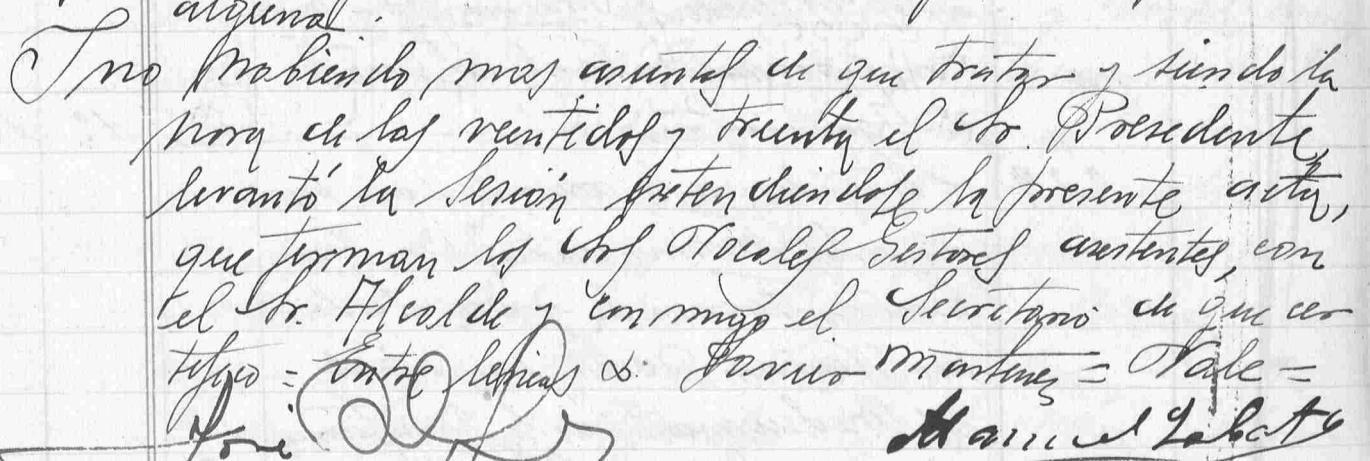 alguna.
Y no habiendo mas asuntos de que tratar y siendo la
hora de las veintidos y treinta el Sr. Presidente,
levantó la sesión extendiendose la presente acta,
que firman los Srs Vocales Gestores asistentes, con
el Sr. Alcalde y conmigo el Secretario de que cer
tifico = Entre lineas D. Martinez = Vale =
José Manuel